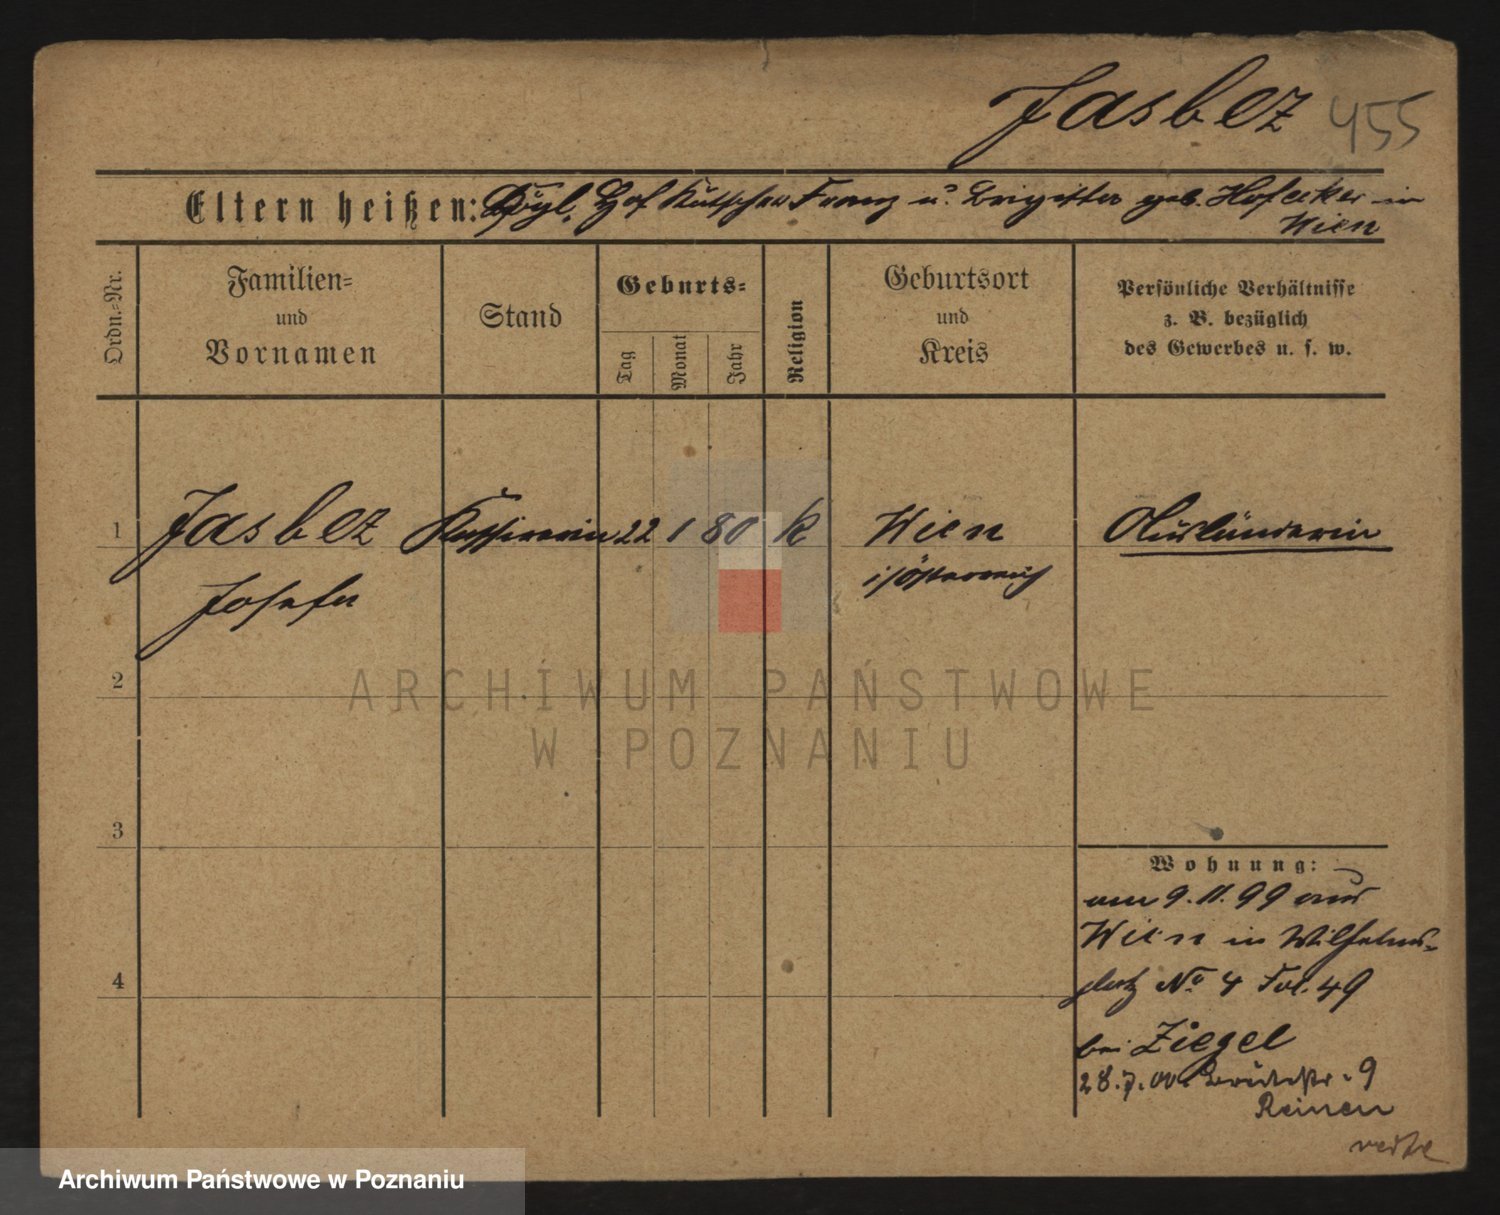 Jasbez 455
Eltern heißen: Kgl. Hof Kutscher Franz u. Brigitta geb. Hofecker in
Wien
Ordn.-Nr.
Familien-
und
Vornamen
Stand
Geburts-
Tag
Monat
Jahr
Religion
Geburtsort
und
Kreis
Persönliche Verhältnisse
z. B. bezüglich
des Gewerbes u. s. w.
1 Jasbez Kassirerin 22 1 80 K Wien Ausländerin
Josefa i/Österreich
2
ARCHIWUM PAŃSTWOWE
W POZNANIU
3
Wohnung:
am 9.11.99 aus
Wien in Wilhelms-
platz No 4 Fol. 49
4
bei Ziegel
28.7.00. 9
Reinen
Archiwum Państwowe w Poznaniu